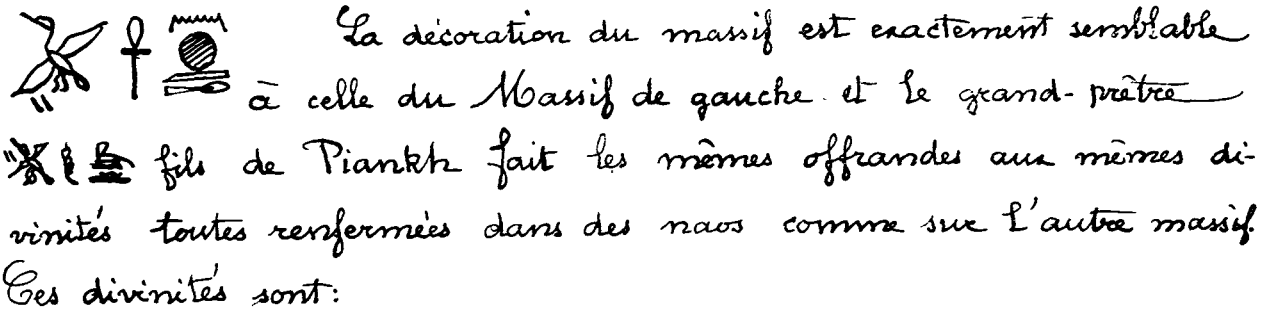 La décoration du massif est exactement semblable
à celle du Massif de gauche et le grand-prêtre
fils de Piankh fait les mêmes offrandes aux mêmes di-
vinités toutes renfermées dans des naos comme sur l'autre massif.
Ces divinités sont: